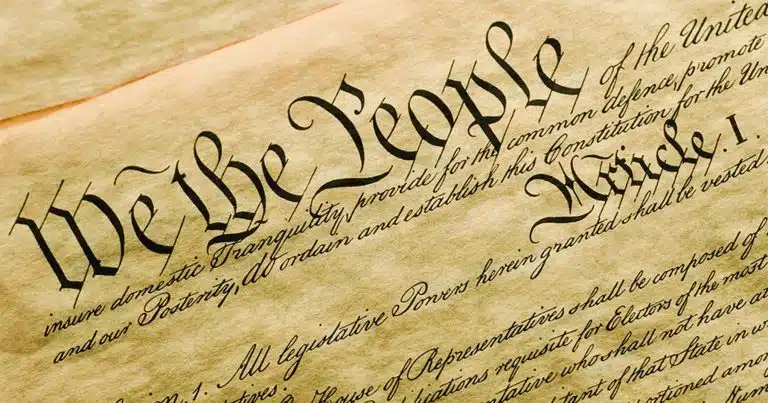 We the People of the United
insure domestic Tranquility, provide for the common defence, promote
and our Posterity, do ordain and establish this Constitution for the Un
Article. I.
1. All legislative Powers herein granted shall be vested
House of Representatives shall be composed of
requisite for Electors of the most
who shall not have at
of that State in w
among